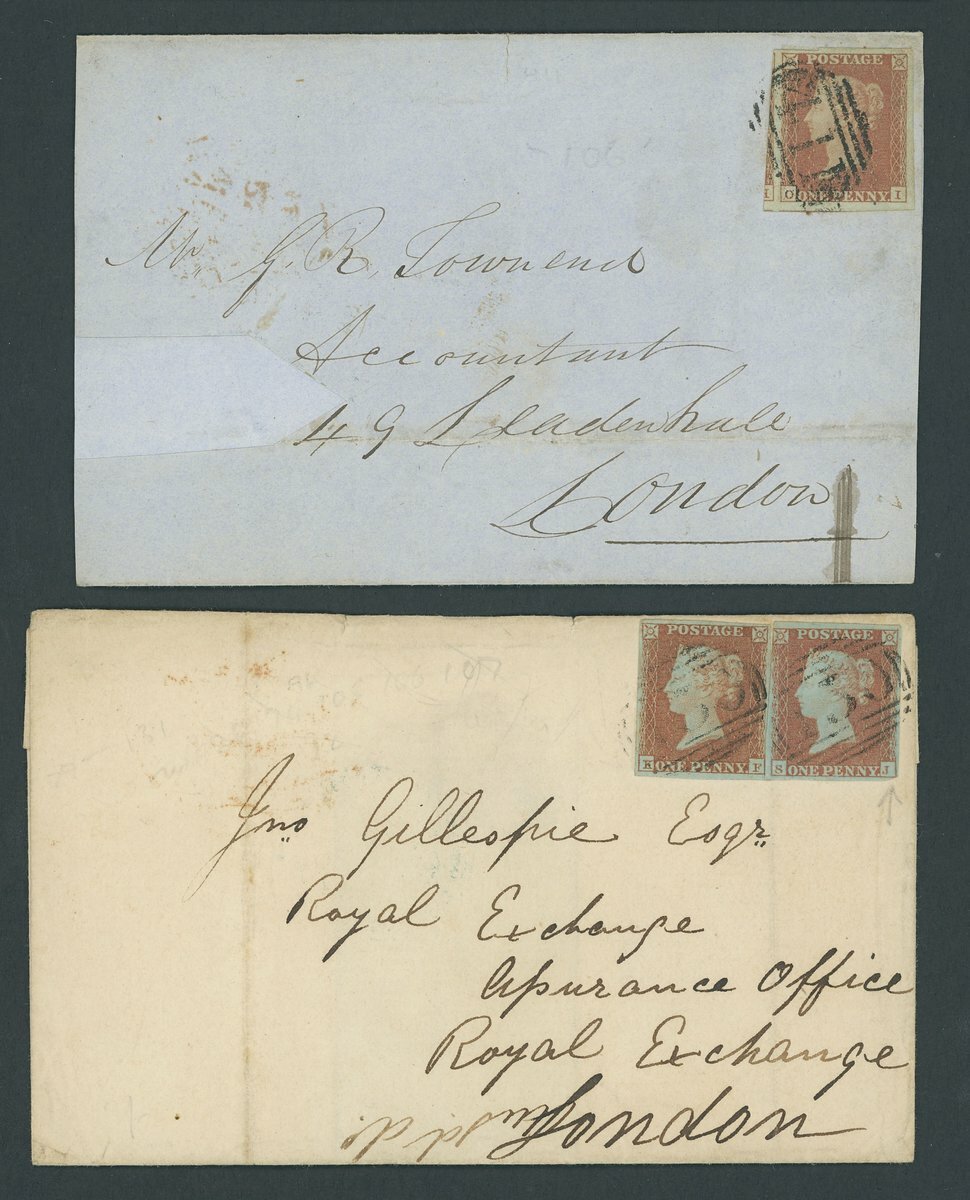 POSTAGE
O ONE PENNY I
Mr. G. R. Townend
Accountant
49 Leadenhall
London
POSTAGE POSTAGE
K ONE PENNY F S ONE PENNY J
Jno Gillespie Esqr
Royal Exchange
Assurance Office
Royal Exchange
London